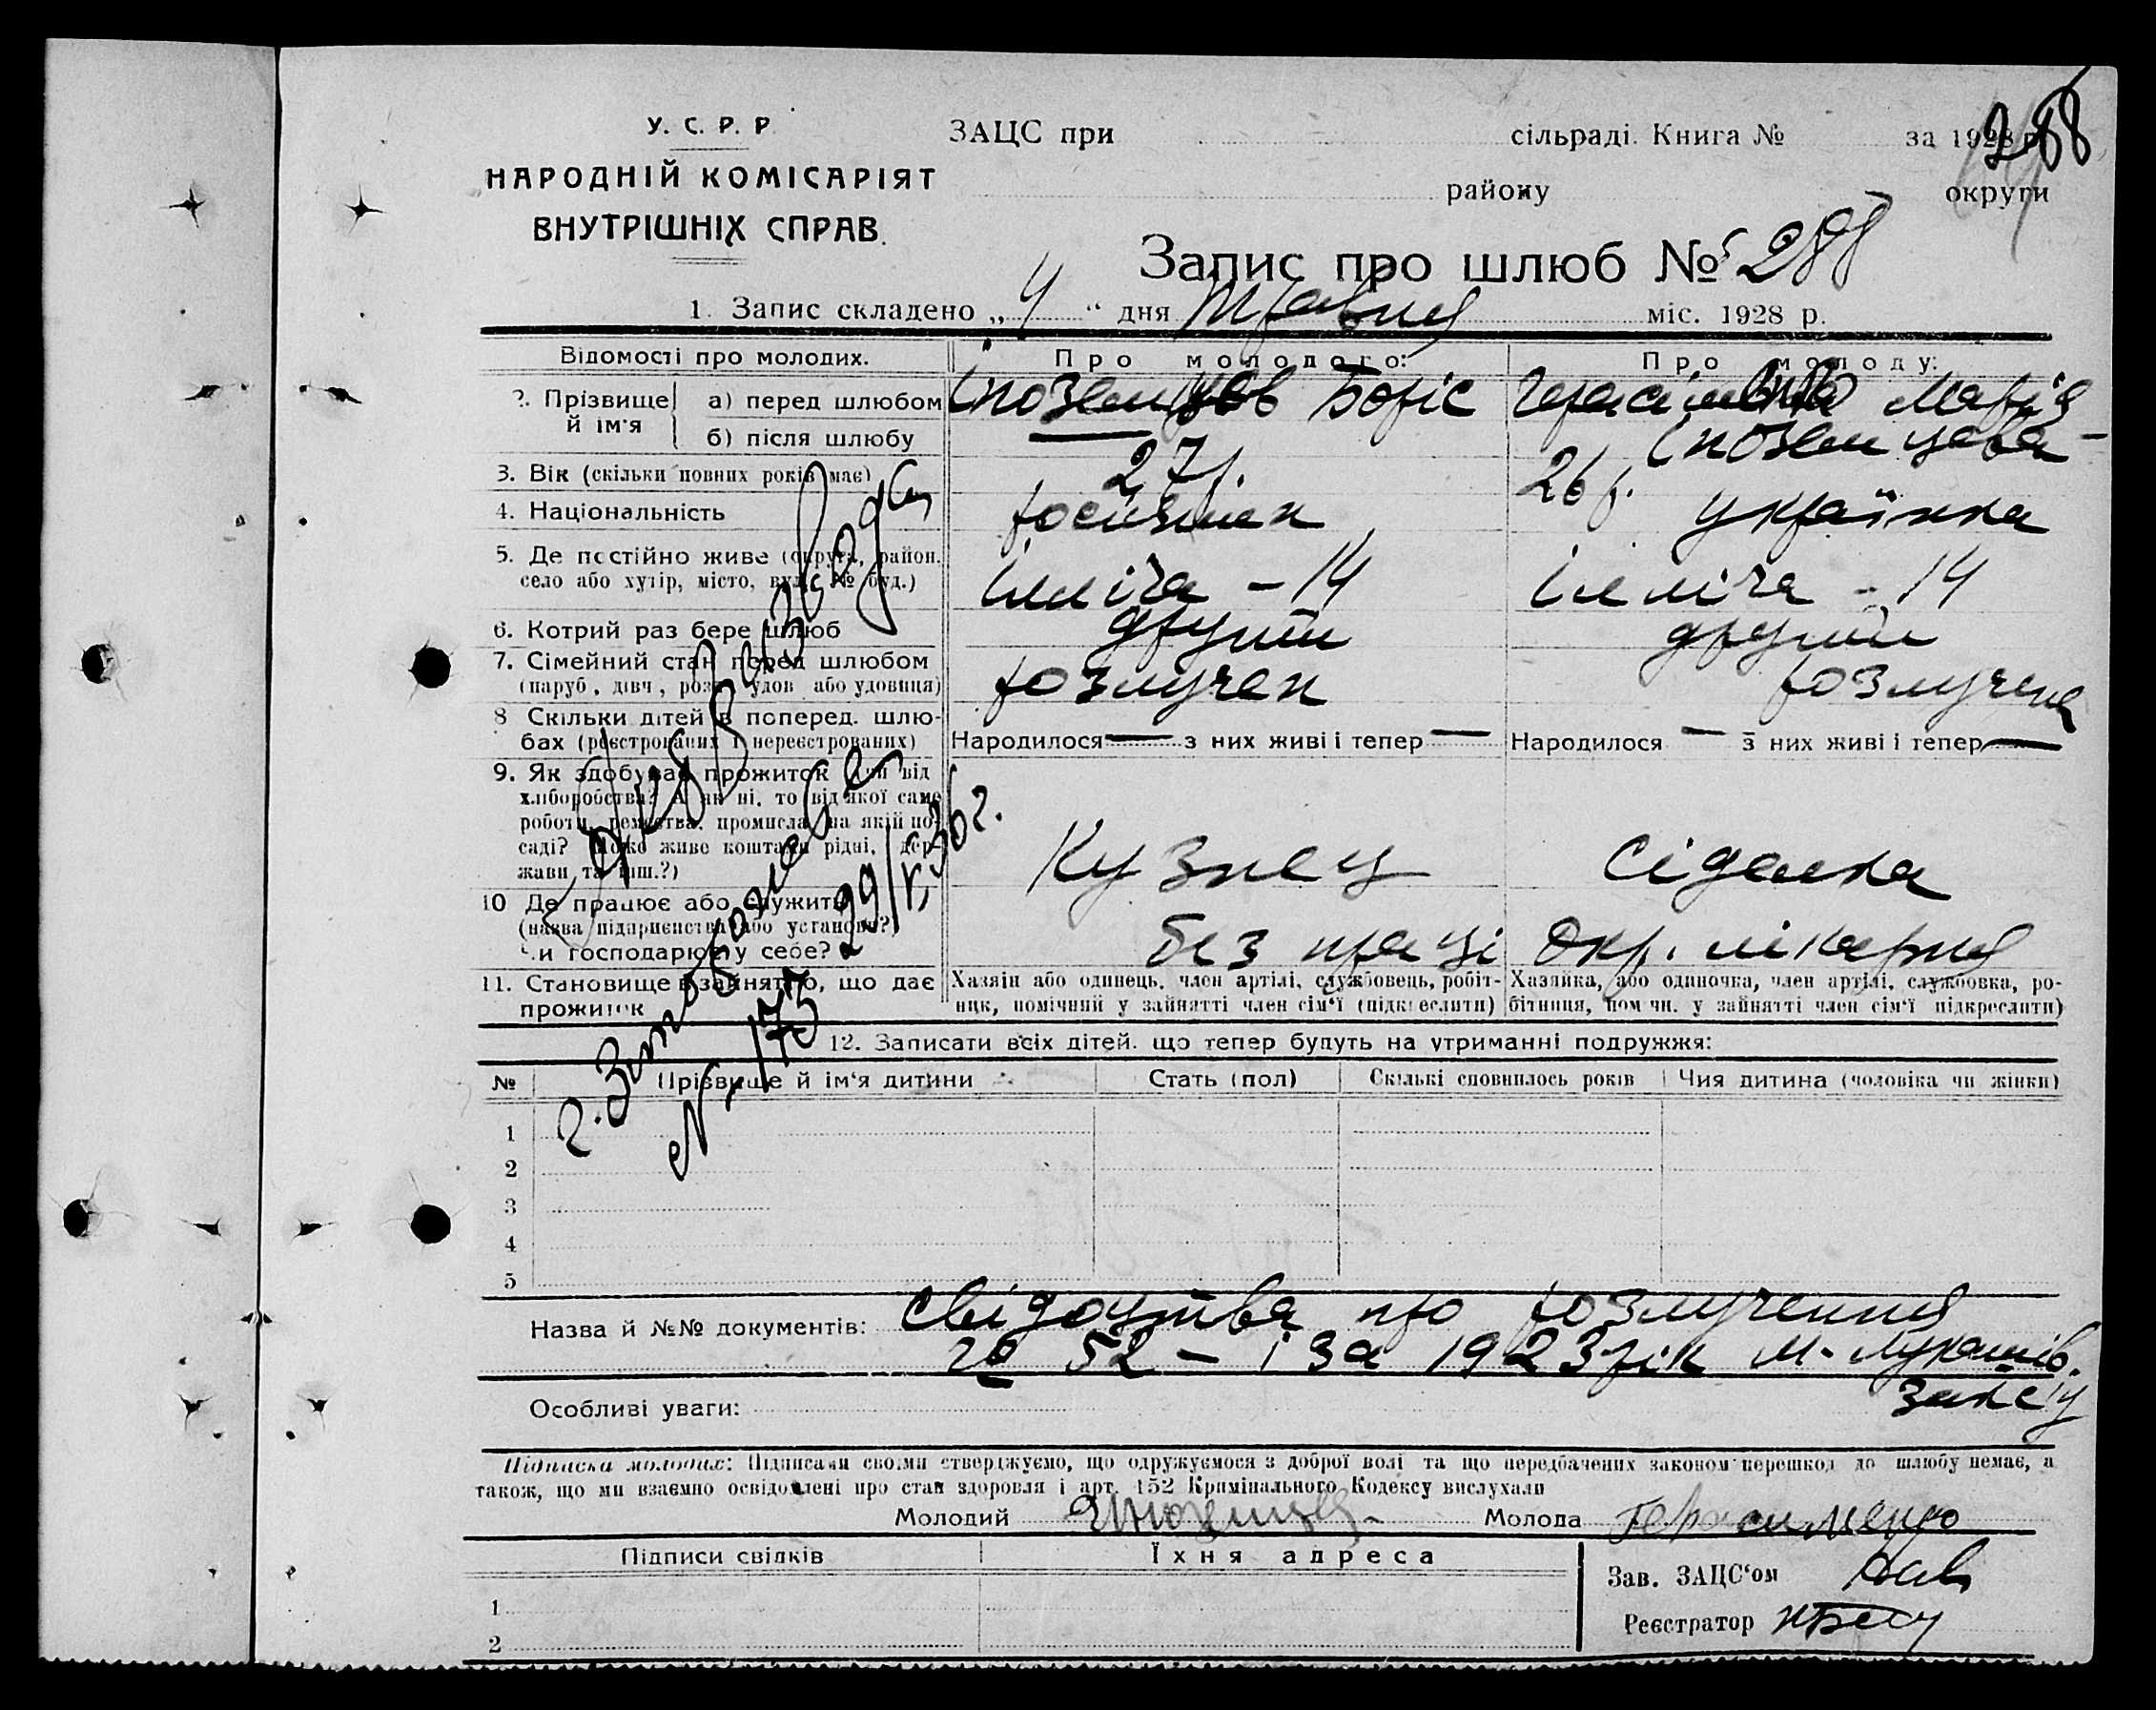 288
У. С. Р. Р.
НАРОДНІЙ КОМІСАРІЯТ
ВНУТРІШНІХ СПРАВ.
ЗАЦС при сільраді. Книга № за 1928 р.
району округи
Запис про шлюб № 288
1. Запис складено „ 4 “ дня травня міс. 1928 р.
Відомості про молодих. Про молодого: Про молоду:
2. Прізвище й ім'я
а) перед шлюбом Іноземцев Боріс Марія
б) після шлюбу Іноземцева
3. Вік (скільки повних років має) 27 р. 26 р.
4. Національність українка
5. Де постійно живе (округа, район,
село або хутір, місто, вул., № буд.) Ілліча - 14 Ілліча - 14
6. Котрий раз бере шлюб другий другий
7. Сімейний стан перед шлюбом
(паруб., дівч., розв., удов. або удовиця) розлучен розлучена
8 Скільки дітей в поперед. шлю-
бах (реєстрованих і нереєстрованих) Народилося — з них живі і тепер — Народилося — з них живі і тепер —
9. Як здобуває прожиток чи від
хліборобства? А як ні, то від якої саме
роботи, ремества, промисла, на якій по-
саді? Може живе коштами рідні, дер-
жави та інш.?) Кузнец Сіделка
10 Де працює або служить
(назва підприємства або установи?)
Чи господарює у себе? без праці Окр. лікарня
11. Становище в зайнятто, що дає
прожиток
Хазяїн або одинець, член артілі, службовець, робіт-
ник, помічний у зайнятті член сім'ї (підкреслити)
Хазяйка, або одиночка, член артілі, службовка, ро-
бітниця, помічн. у зайнятті член сім'ї підкреслити)
12. Записати всіх дітей, що тепер будуть на утриманні подружжя:
№ Прізвище й ім'я дитини Стать (пол) Скількі сповнилось років Чия дитина (чоловіка чи жінки)
1
2
3
4
5
N- 173 29/V 36 г.
Назва й №№ документів: свідоцтва про розлучення
№ 52 - і за 1923 рік м.
Особливі уваги: загсіу
Підписка молодих: Підписами своїми стверджуємо, що одружуємося з доброї волі та що передбачених законом перешкод до шлюбу немає, а
також, що ми взаємно освідомлені про стан здоровля і арт. 152 Кримінального Кодексу вислухали
Молодий Молода Герасименко
Підписи свідків Їхня адреса
1
2
Зав. ЗАЦС'ом
Реєстратор